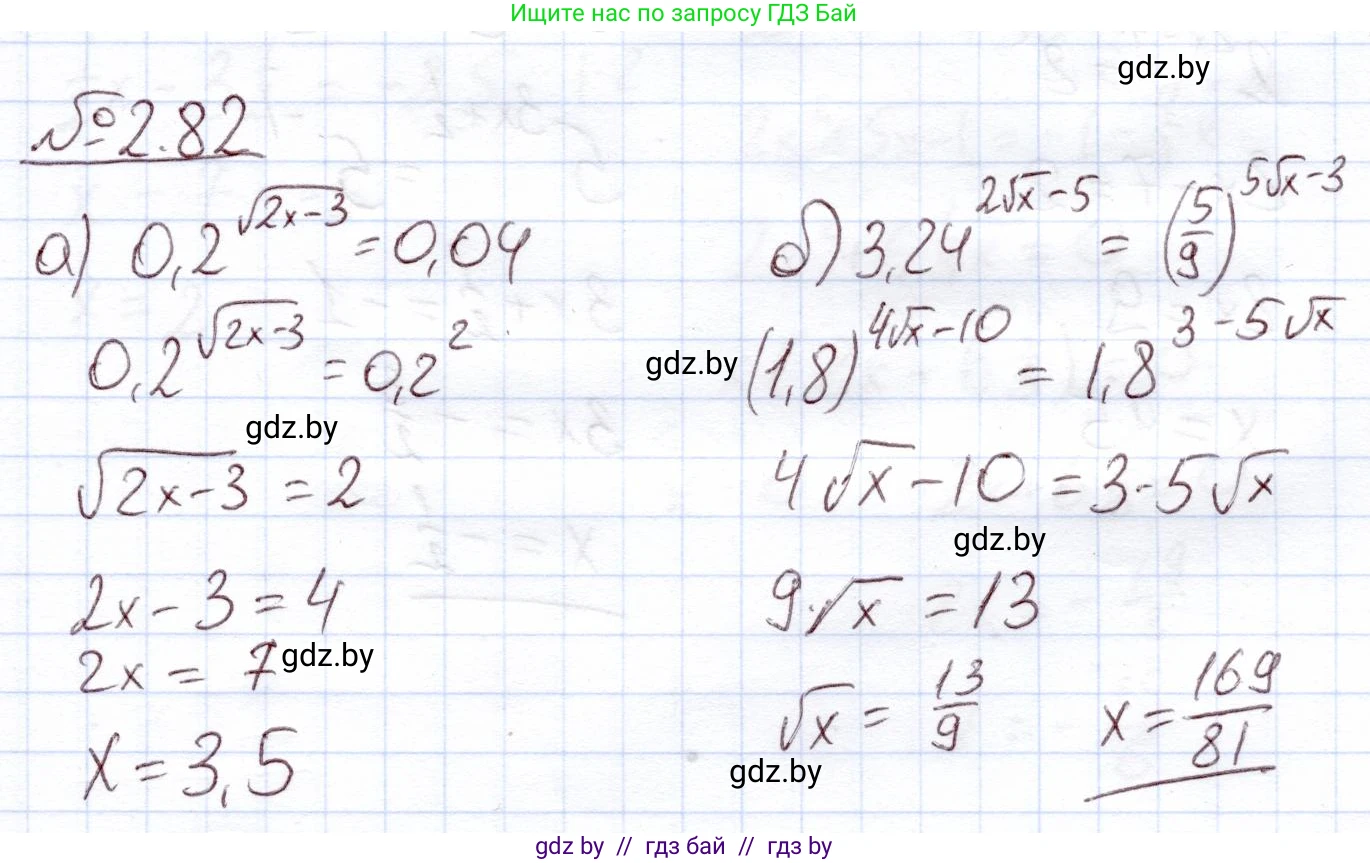 Ищите нас по запросу ГДЗ Бай
gdz.by
№2.82
а) 0,2^√(2x-3) = 0,04
0,2^√(2x-3) = 0,2^2
gdz.by
√(2x-3) = 2
2x - 3 = 4
2x = 7
gdz.by
x = 3,5
б) 3,24^(2√x - 5) = (5/9)^(5√x - 3)
gdz.by
(1,8)^(4√x - 10) = 1,8^(3 - 5√x)
4√x - 10 = 3 - 5√x
gdz.by
9√x = 13
√x = 13/9 x = 169/81
gdz.by
gdz.by // гдз бай // гдз by